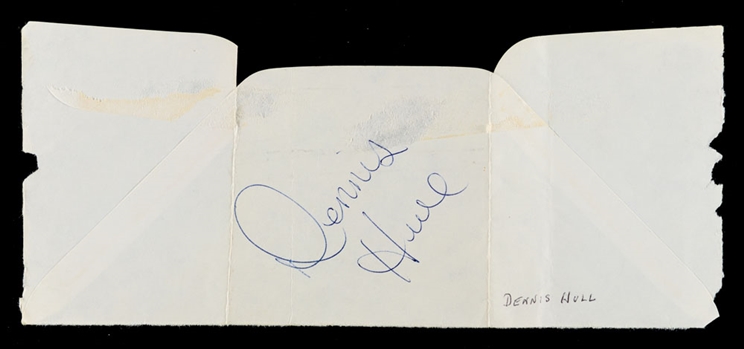 Dennis
Hull
DENNIS HULL